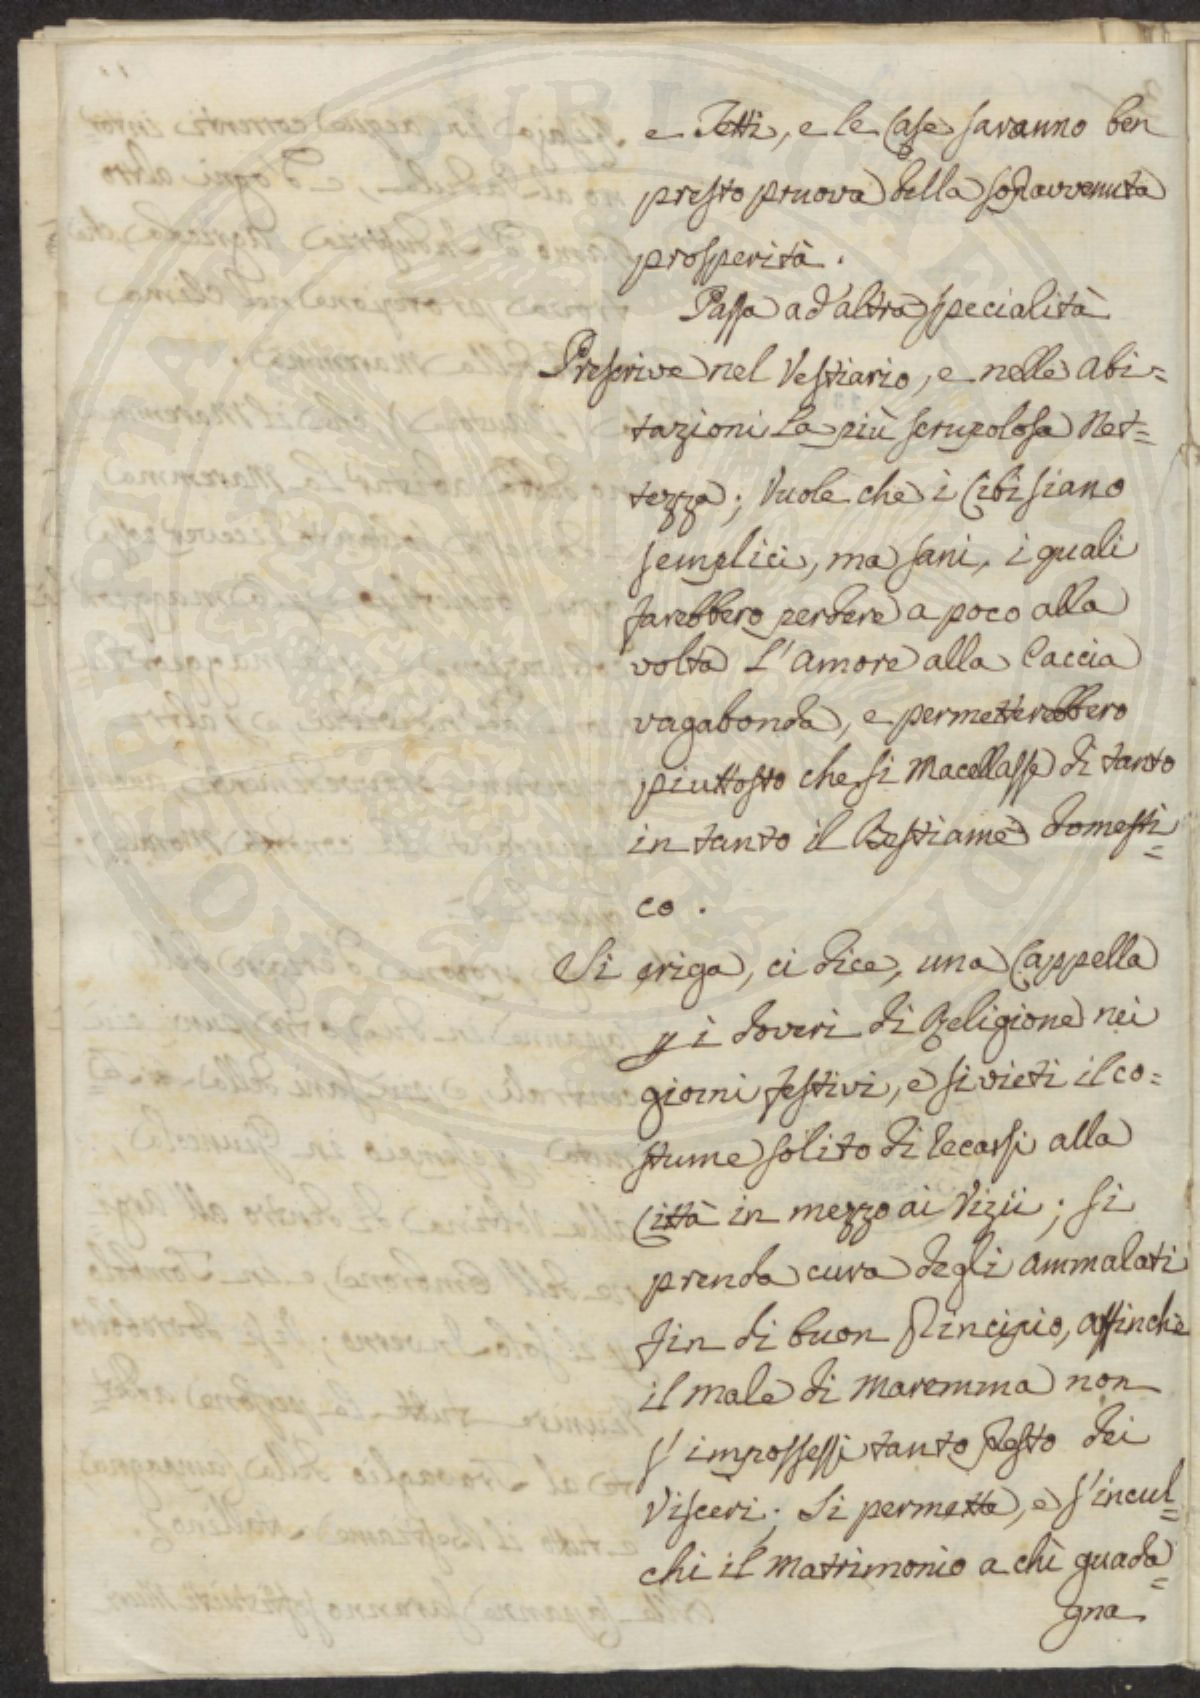 e Tetti, e le Case saranno ben
presto pruova della sopravvenuta
prosperità.
Passa ad altra specialità
Prescrive nel Vestiario, e nelle abi=
tazioni La più scrupolosa Net=
tezza; Vuole che i Cibi siano
semplici, ma sani, i quali
farebbero perdere a poco alla
volta L'amore alla Caccia
vagabonda, e permetterebbero
piuttosto che si Macellasse di tanto
in tanto il Bestiame domesti=
co.
Si eriga, ci dice, una Cappella
p i doveri di Religione nei
giorni festivi, e si vieti il co=
stume solito di recarsi alla
Città in mezzo ai Vizii; si
prenda cura degli ammalati
fin di buon Principio, affinchè
il male di Maremma non
s'impossessi tanto Presto dei
Visceri; Si permetta, e s'incul=
chi il Matrimonio a chi guada=
gna